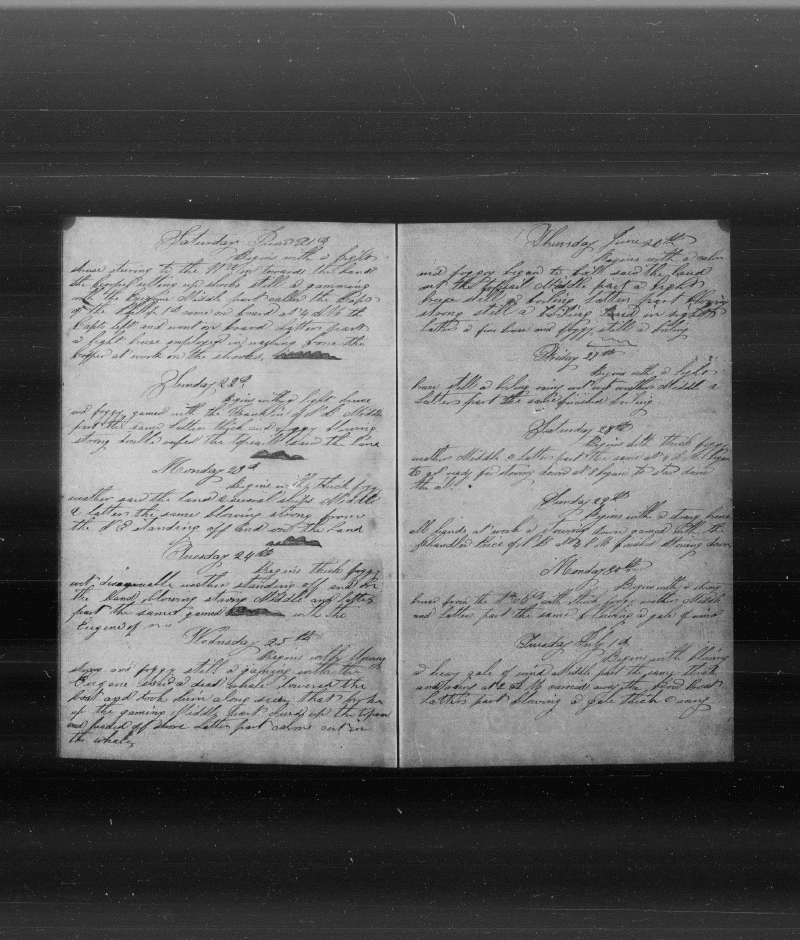 Saturday June 21st
Begins with a light
breeze steering to the in towards the land
the Cooper setting up shooks still a gamming
with the Eugene Middle part called the Capt
of the Phillip 1st come on board at 4 the
Capts left and went on board Latter part
a light breeze employed in washing bone the
Cooper at work on the shooks
Sunday 22d
Begins with a light breeze
and foggy gamed with the Franklin of N B Middle
part the same Latter thick and foggy blowing
strong double reefed the topsails saw the land
Monday 23d
Begins with thick fog
weather saw the land & several ships Middle
& latter the same blowing strong from
the N E standing off and on the land
Tuesday 24th
Begins thick foggy
wet disagreeable weather standing off and on
the land blowing strong Middle and latter
part the same gamed with the
Eugene of
Wednsday 25th
Begins with blowing
strong and foggy still a gaming with the
Eugene saw a dead whale lowered the
boat and took him along side that broke
up the gaming Middle part
and latter part
the whale
Thursday June 26th
Begins with a calm
and foggy began to boil saw the land
set the topsail Middle part a light
breeze still a boiling Latter part blowing
strong still a boiling land in sight
latter a fine breeze and foggy still a boiling
Friday 27th
Begins with a light
breeze still a boiling weather Middle &
Latter part the same finished boiling
Saturday 28th
Begins with thick foggy
weather Middle & latter part the same at 4 began
to get ready for stowing down at 8 began to stow down
the oil
Sunday 29th
Begins with a strong breeze
all hands at work a stowing down gamed with the
of N B at 2 P M finished stowing down
Monday 30th
Begins with a strong
breeze from the with thick foggy weather Middle
and latter part the same & blowing a gale of wind
Tuesday July 1st
Begins with blowing
a heavy gale of wind Middle part the same thick
and at 2 A M carried away the bow boat
Latter part blowing a gale thick &